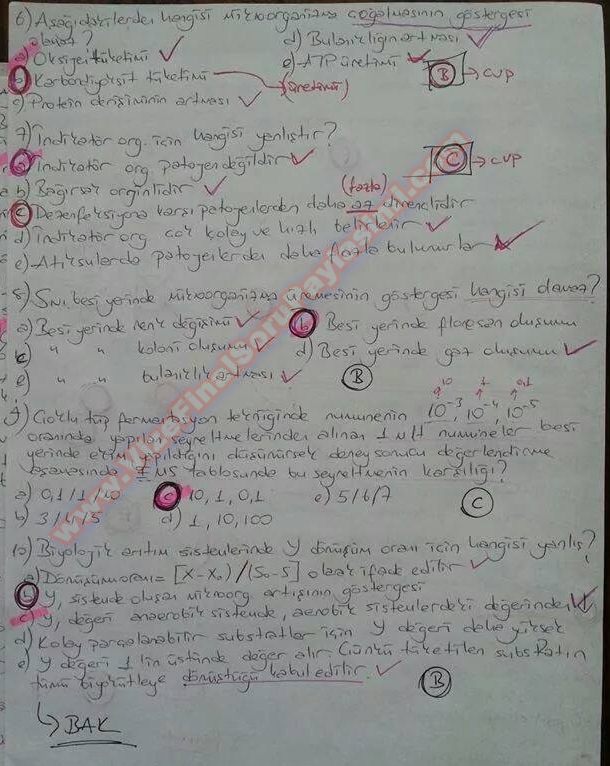 6) Aşağıdakilerden hangisi mikroorganizma çoğalmasının göstergesi
olamaz?
a) Oksijen tüketimi ✓
d) Bulanıklığın artması ✓
b) Karbondiyoksit tüketimi
(üretimi)
e) ATP üretimi ✓
B → CVP
c) Protein derişiminin artması ✓
7) İndikatör org. için hangisi yanlıştır?
a) İndikatör org. patojen değildir ✓
C → CVP
b) Bağırsak orginlidir ✓
(fazla)
c) Dezenfeksiyona karşı patojenlerden daha az dirençlidir
d) İndikatör org çok kolay ve hızlı belirlenir ✓
e) Atıksularda patojenlerden daha fazla bulunurlar ✓
8) Sıvı besi yerinde mikroorganizma üremesinin göstergesi hangisi olamaz?
a) Besi yerinde renk değişimi ✓
b) Besi yerinde floresan oluşumu
c) " " koloni oluşumu ✓
d) Besi yerinde gaz oluşumu ✓
e) " " bulanıklık artması ✓
B
9) Çoklu tüp fermantasyon tekniğinde numunenin 10⁻³, 10⁻⁴, 10⁻⁵
10 1 0,1
oranında yapılan seyreltmelerinden alınan 1 ml numuneler besi
yerinde ekim yapıldığını düşünürsek deney sonucu değerlendirme
aşamasında EMS tablosunda bu seyreltmenin karşılığı?
a) 0,1 / 1 / 10
c) 10, 1, 0,1
e) 5/6/7
C
b) 3/4/5
d) 1, 10, 100
10) Biyolojik arıtım sistemlerinde Y dönüşüm oranı için hangisi yanlış?
a) Dönüşüm oranı = [X-X₀) / (S₀-S] olarak ifade edilir ✓
b) Y, sistemde oluşan mikroorg artışının göstergesi
c) Y, değeri anaerobik sistemde, aerobik sistemlerdeki değerinden
d) Kolay parçalanabilir substratlar için Y değeri daha yüksek
e) Y değeri 1'in üstünde değer alır Çünkü tüketilen substratın
tümü biyokütleye dönüştüğü kabul edilir. ✓
B
↳ BAK
www.VizeFinalSoruPaylasimi.com